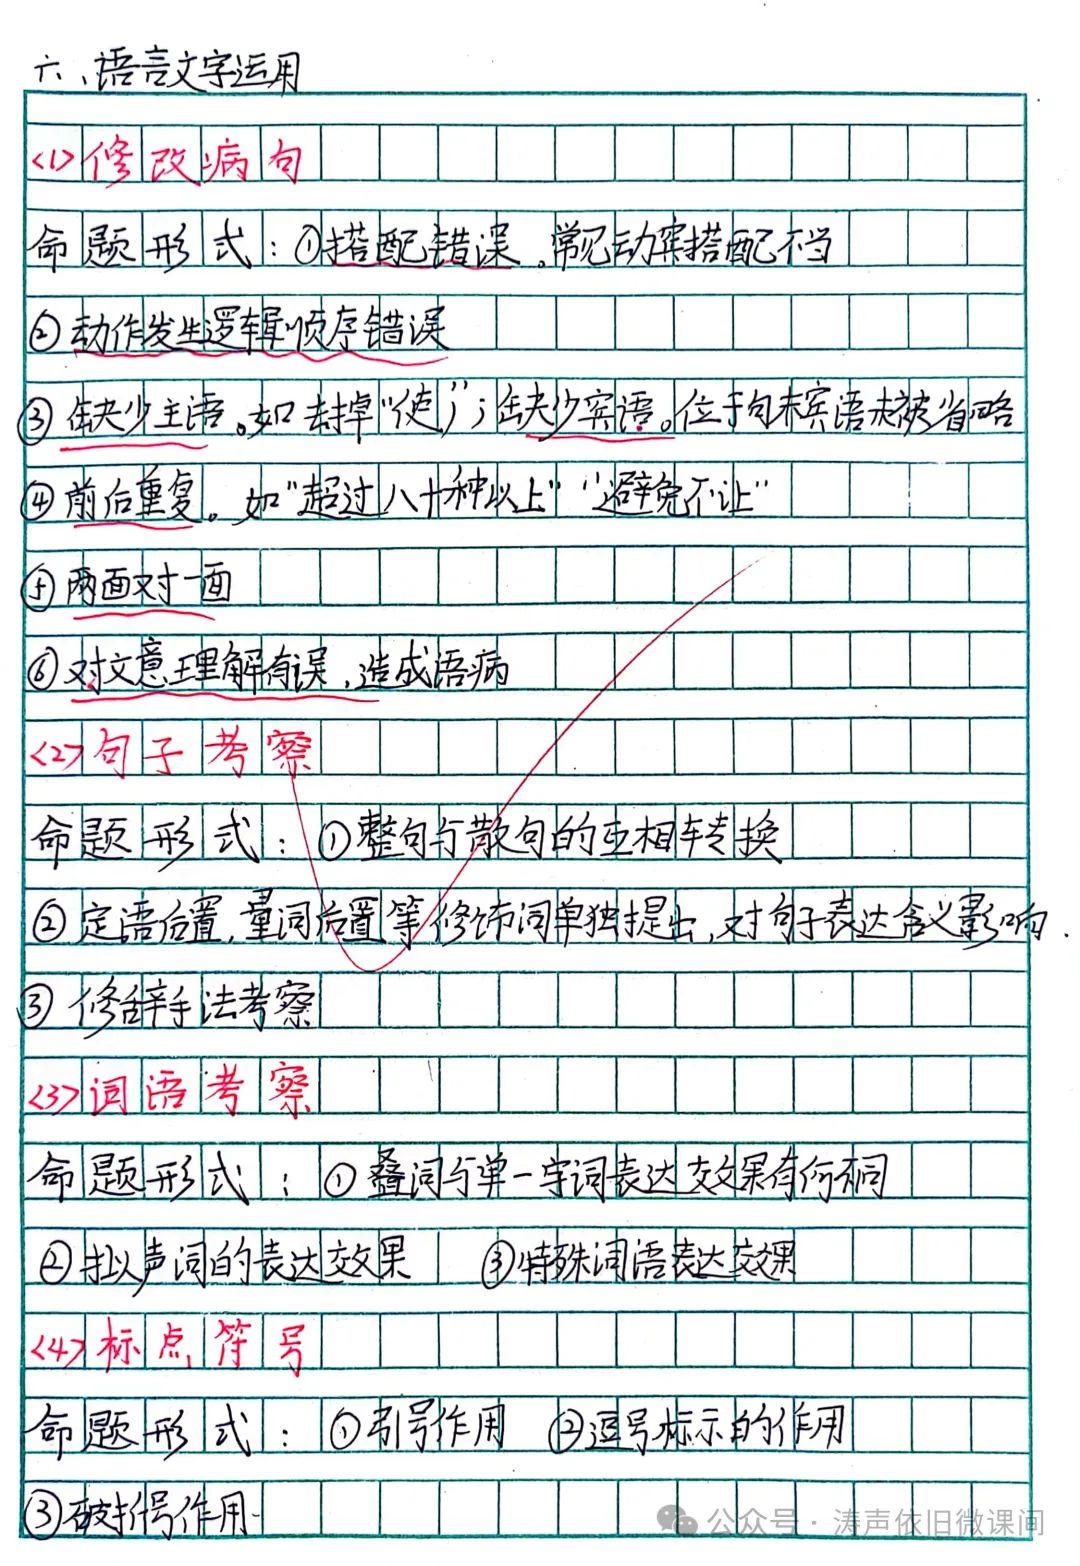 六、语言文字运用
<1>修改病句
命题形式:①搭配错误。常见动宾搭配不当
②动作发生逻辑顺序错误
③缺少主语。如去掉“使”;缺少宾语。位于句末宾语未被省略
④前后重复。如“超过八十种以上”“避免不让”
⑤两面对一面
⑥对文意理解有误,造成语病
<2>句子考察
命题形式:①整句与散句的互相转换
②定语后置,量词后置等修饰词单独提出,对句子表达含义影响.
③修辞手法考察
<3>词语考察
命题形式:①叠词与单一字词表达效果有何不同
②拟声词的表达效果 ③特殊词语表达效果
<4>标点符号
命题形式:①引号作用 ②逗号标示的作用
③破折号作用.
公众号·涛声依旧微课间